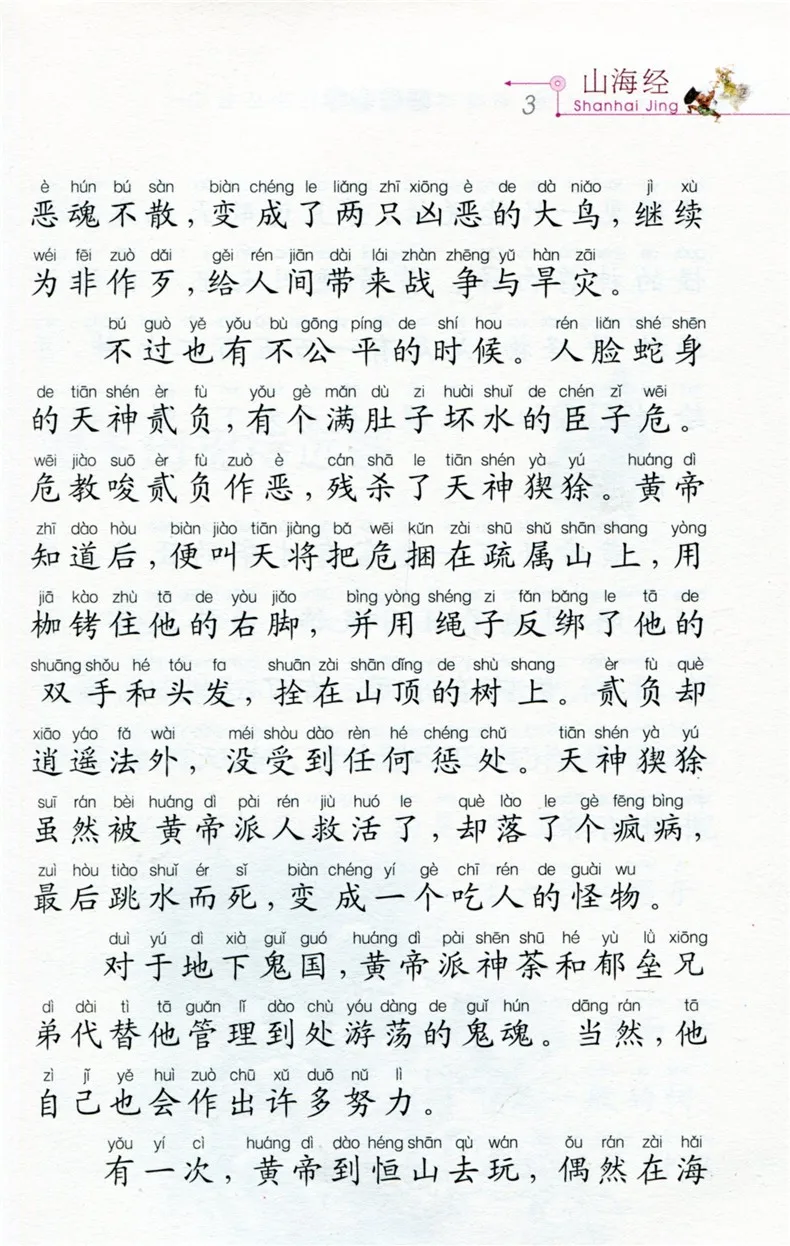 山海经
3 Shanhai Jing
è hún bú sàn biàn chéng le liǎng zhī xiōng è de dà niǎo jì xù
恶魂不散,变成了两只凶恶的大鸟,继续
wéi fēi zuò dǎi gěi rén jiān dài lái zhàn zhēng yǔ hàn zāi
为非作歹,给人间带来战争与旱灾。
bú guò yě yǒu bù gōng píng de shí hou rén liǎn shé shēn
不过也有不公平的时候。人脸蛇身
de tiān shén èr fù yǒu gè mǎn dù zi huài shuǐ de chén zǐ wēi
的天神贰负,有个满肚子坏水的臣子危。
wēi jiào suō èr fù zuò è cán shā le tiān shén yà yú huáng dì
危教唆贰负作恶,残杀了天神猰狳。黄帝
zhī dào hòu biàn jiào tiān jiàng bǎ wēi kǔn zài shū shǔ shān shang yòng
知道后,便叫天将把危捆在疏属山上,用
jiā kào zhù tā de yòu jiǎo bìng yòng shéng zi fǎn bǎng le tā de
枷铐住他的右脚,并用绳子反绑了他的
shuāng shǒu hé tóu fa shuān zài shān dǐng de shù shang èr fù què
双手和头发,拴在山顶的树上。贰负却
xiāo yáo fǎ wài méi shòu dào rèn hé chéng chǔ tiān shén yà yú
逍遥法外,没受到任何惩处。天神猰狳
suī rán bèi huáng dì pài rén jiù huó le què lào le gè fēng bìng
虽然被黄帝派人救活了,却落了个疯病,
zuì hòu tiào shuǐ ér sǐ biàn chéng yí gè chī rén de guài wu
最后跳水而死,变成一个吃人的怪物。
duì yú dì xià guǐ guó huáng dì pài shēn shū hé yù lǜ xiōng
对于地下鬼国,黄帝派神荼和郁垒兄
dì dài tì tā guǎn lǐ dào chù yóu dàng de guǐ hún dāng rán tā
弟代替他管理到处游荡的鬼魂。当然,他
zì jǐ yě huì zuò chū xǔ duō nǔ lì
自己也会作出许多努力。
yǒu yí cì huáng dì dào héng shān qù wán ǒu rán zài hǎi
有一次,黄帝到恒山去玩,偶然在海